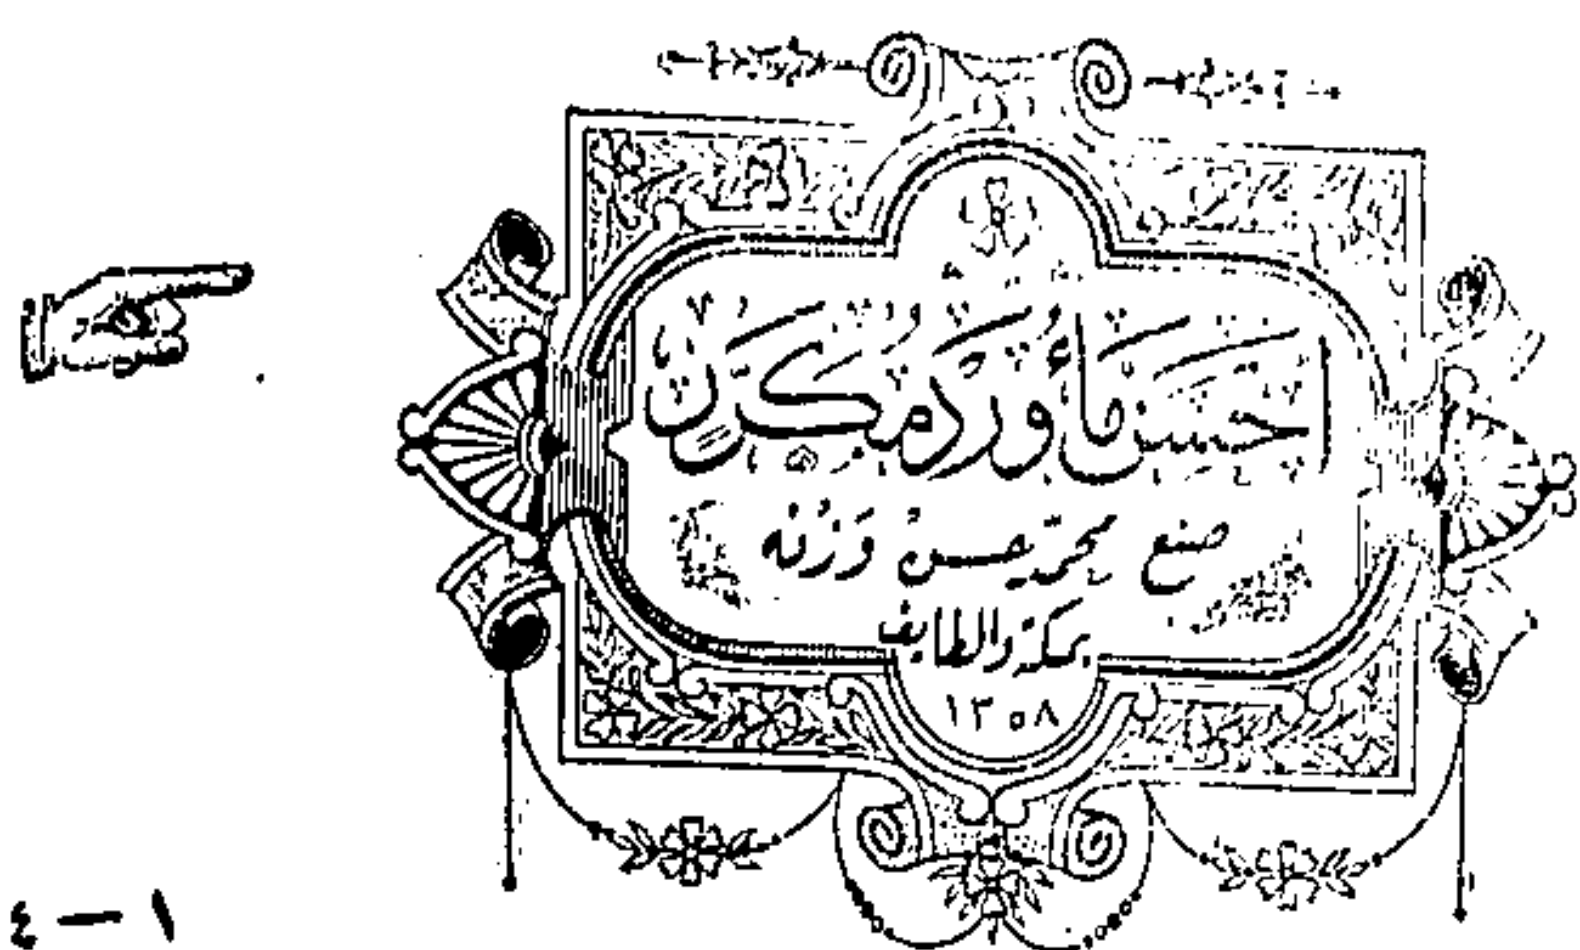 احسن ماء ورد مكرر
صنع محمد حسن وزنه
بمكة والطايف
١٣٥٨
١ — ٤